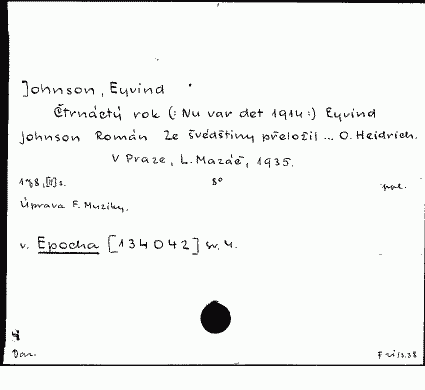 Johnson, Eyvind
Čtrnáctý rok (: Nu var det 1914:) Eyvind
Johnson Román Ze švédštiny přeložil ... O. Heidrich.
V Praze, L. Mazáč, 1935.
178, [II] s. 8°
Úprava F. Muziky.
v. Epocha [134042] sv. 4.
4
Dar.